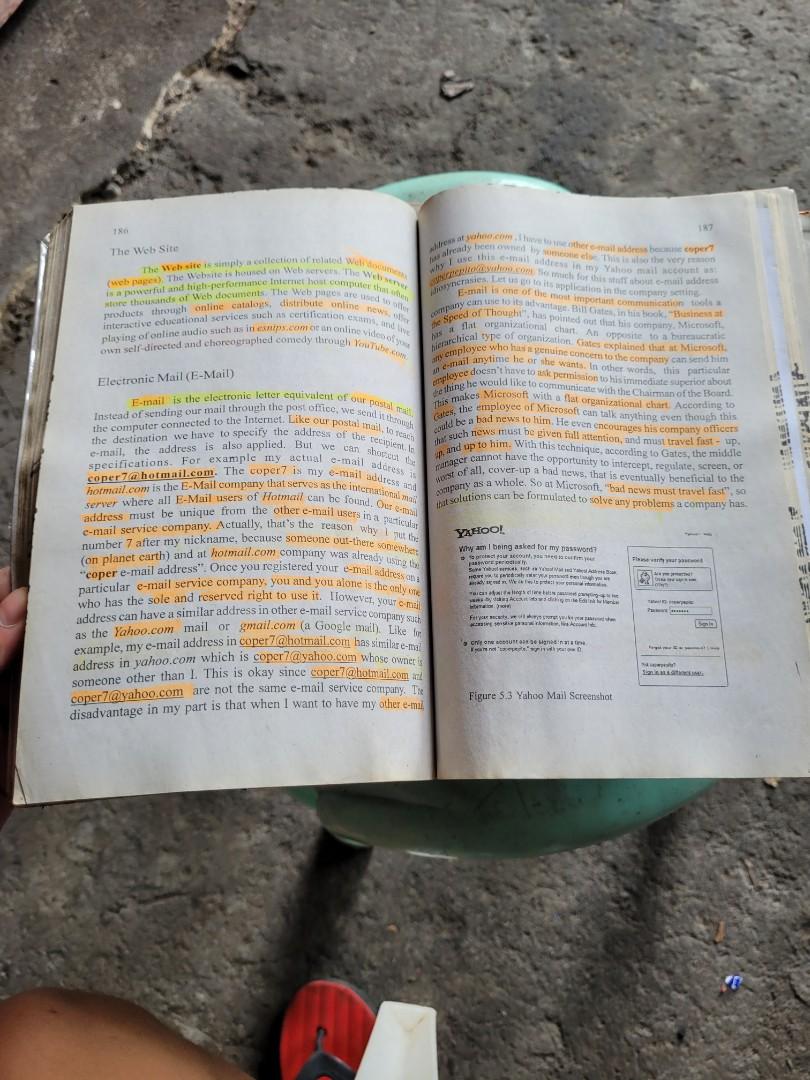 186
The Web Site
The Web site is simply a collection of related Web documents
(web pages). The Website is housed on Web servers. The Web server
is a powerful and high-performance Internet host computer that often
store thousands of Web documents. The Web pages are used to offer
products through online catalogs, distribute online news, offer
interactive educational services such as certification exams, and live
playing of online audio such as in esnips.com or an online video of your
own self-directed and choreographed comedy through YouTube.com.
Electronic Mail (E-Mail)
E-mail is the electronic letter equivalent of our postal mail.
Instead of sending our mail through the post office, we send it through
the computer connected to the Internet. Like our postal mail, to reach
the destination we have to specify the address of the recipient. In
e-mail, the address is also applied. But we can shortcut the
specifications. For example my actual e-mail address is
coper7@hotmail.com. The coper7 is my e-mail address and
hotmail.com is the E-Mail company that serves as the international mail
server where all E-Mail users of Hotmail can be found. Our e-mail
address must be unique from the other e-mail users in a particular
e-mail service company. Actually, that's the reason why I put the
number 7 after my nickname, because someone out-there somewhere
(on planet earth) and at hotmail.com company was already using the
"coper e-mail address". Once you registered your e-mail address on a
particular e-mail service company, you and you alone is the only one
who has the sole and reserved right to use it. However, your e-mail
address can have a similar address in other e-mail service company such
as the Yahoo.com mail or gmail.com (a Google mail). Like for
example, my e-mail address in coper7@hotmail.com has similar e-mail
address in yahoo.com which is coper7@yahoo.com whose owner is
someone other than I. This is okay since coper7@hotmail.com and
coper7@yahoo.com are not the same e-mail service company. The
disadvantage in my part is that when I want to have my other e-mail
187
address at yahoo.com, I have to use other e-mail address because coper7
has already been owned by someone else. This is also the very reason
why I use this e-mail address in my Yahoo mail account as:
coperpepito@yahoo.com. So much for this stuff about e-mail address
idiosyncrasies. Let us go to its application in the company setting.
E-mail is one of the most important communication tools a
company can use to its advantage. Bill Gates, in his book, "Business at
the Speed of Thought", has pointed out that his company, Microsoft,
has a flat organizational chart. An opposite to a bureaucratic
hierarchical type of organization. Gates explained that at Microsoft,
any employee who has a genuine concern to the company can send him
an e-mail anytime he or she wants. In other words, this particular
employee doesn't have to ask permission to his immediate superior about
the thing he would like to communicate with the Chairman of the Board.
This makes Microsoft with a flat organizational chart. According to
Gates, the employee of Microsoft can talk anything even though this
could be a bad news to him. He even encourages his company officers
that such news must be given full attention, and must travel fast - up,
up, and up to him. With this technique, according to Gates, the middle
manager cannot have the opportunity to intercept, regulate, screen, or
worst of all, cover-up a bad news, that is eventually beneficial to the
company as a whole. So at Microsoft, "bad news must travel fast", so
that solutions can be formulated to solve any problems a company has.
YAHOO!
Why am I being asked for my password?
To protect your account, you need to confirm your
password periodically.
Please verify your password
Yahoo! ID: coperpepito
Password:
Sign in
Only one account can be signed in at a time.
If you're not "coperpepito," sign in with your own ID.
Not coperpepito?
Sign in as a different user.
Figure 5.3 Yahoo Mail Screenshot